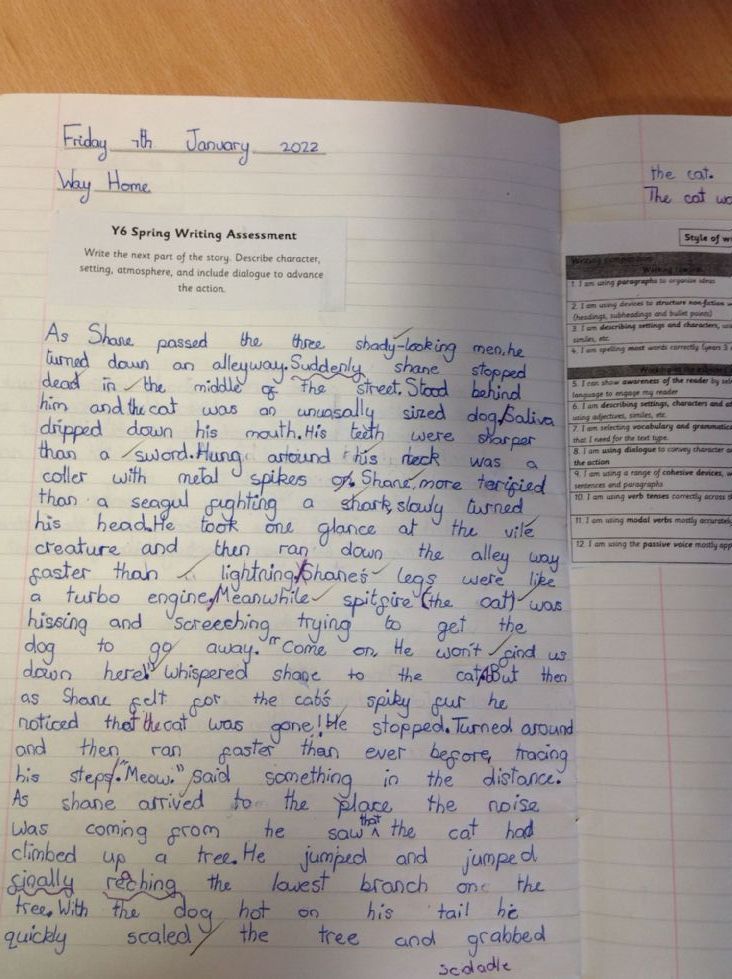 Friday 7th January 2022
Way Home
Y6 Spring Writing Assessment
Write the next part of the story. Describe character,
setting, atmosphere, and include dialogue to advance
the action.
As Shane passed the three shady-looking men, he
turned down an alleyway. Suddenly shane stopped
dead in the middle of The street. Stood behind
him and the cat was an unusally sized dog. Saliva
dripped down his mouth. His teeth were sharper
than a sword. Hung around his neck was a
coller with metal spikes on. Shane, more terified
than a seagul fighting a shark, slowly turned
his head. He took one glance at the vile
creature and then ran down the alley way
faster than lightning. Shane's legs were like
a turbo engine. Meanwhile spitfire (the cat) was
hissing and screeching trying to get the
dog to go away. "Come on, He won't find us
down here!" whispered shane to the cat. But then
as Shane felt for the cab's spiky fur he
noticed that the cat was gone! He stopped. Turned around
and then ran faster than ever before, tracing
his steps. "Meow." said something in the distance.
As shane arrived to the place the noise
was coming from he saw that the cat had
climbed up a tree. He jumped and jumped
finally reching the lowest branch on the
tree. With the dog hot on his tail he
quickly scaled the tree and grabbed
scdadle
the cat.
The cat wa
Style of w
Writing composition
1. I am using paragraphs to organise ideas
2. I am using devices to structure non-fiction w
(headings, subheadings and bullet points)
3. I am describing settings and characters, us
similes, etc.
4. I am spelling most words correctly (years 3
5. I can show awareness of the reader by sel
language to engage my reader
6. I am describing settings, characters and at
using adjectives, similes, etc.
7. I am selecting vocabulary and grammatica
that I need for the text type.
8. I am using dialogue to convey character a
the action
9. I am using a range of cohesive devices, w
sentences and paragraphs
10. I am using verb tenses correctly across t
11. I am using modal verbs mostly accurately
12. I am using the passive voice mostly app